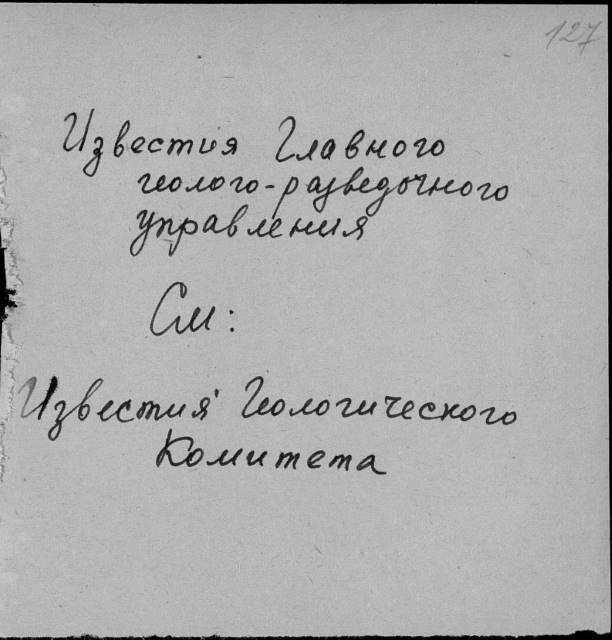 127
Известия Главного
геолого-разведочного
управления
См:
Известия Геологического
Комитета